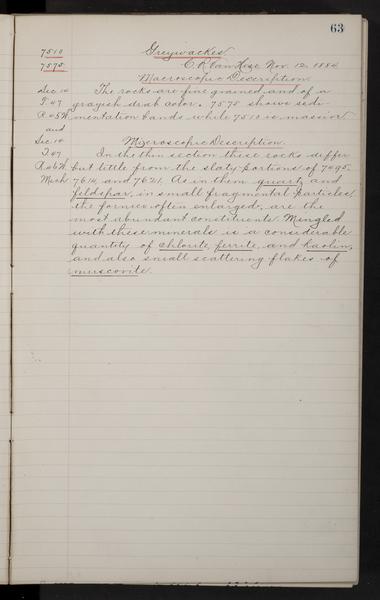 63
7510 Greywackes
7575 C. R. Van Hise Nov. 12. 1884
Macroscopic Description
Sec. 10 The rocks are fine grained and of a
T. 47 grayish drab color. 7575 shows sedi-
mentation bands while 7510 is massive
and
Sec. 14 Microscopic Description
T. 47 In the thin section these rocks differ
but little from the slaty portions of 7495,
Mich 7614 and 7621. As in them quartz and
feldspar, in small fragmental particles
the former often enlarged, are the
most abundant constituents. Mingled
with these minerals is a considerable
quantity of chlorite, ferrite, and kaolin,
and also small scattering flakes of
muscovite.